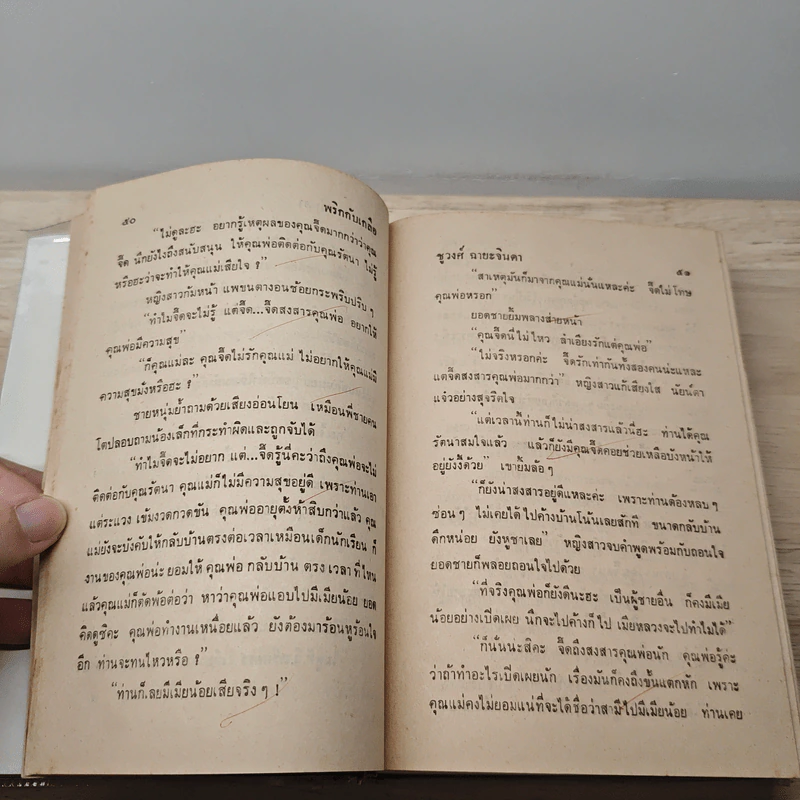 ๕๐ พริกกับเกลือ
"ไม่ดูละฮะ อยากรู้เหตุผลของคุณจี๊ดมากกว่าว่าคุณ
จี๊ด นึกยังไงถึงสนับสนุน ให้คุณพ่อติดต่อกับคุณรัตนา ไม่รู้
หรือฮะว่าจะทำให้คุณแม่เสียใจ ?"
หญิงสาวก้มหน้า แพขนตางอนช้อยกระพริบปริบ ๆ
"ทำไมจี๊ดจะไม่รู้ แต่จี๊ด...จี๊ดสงสารคุณพ่อ อยากให้
คุณพ่อมีความสุข"
"ก็คุณแม่ละ คุณจี๊ดไม่รักคุณแม่ ไม่อยากให้คุณแม่มี
ความสุขมั่งหรือฮะ ?"
ชายหนุ่มย้ำถามด้วยเสียงอ่อนโยน เหมือนพี่ชายคน
โตปลอบถามน้องเล็กที่กระทำผิดและถูกจับได้
"ทำไมจี๊ดจะไม่อยาก แต่...จี๊ดรู้นี่คะว่าถึงคุณพ่อจะไม่
คิดต่อกับคุณรัตนา คุณแม่ก็ไม่มีความสุขอยู่ดี เพราะท่านเอา
แต่ระแวง เข้มงวดกวดขัน คุณพ่ออายุตั้งห้าสิบกว่าแล้ว คุณ
แม่ยังจะบังคับให้กลับบ้านตรงต่อเวลาเหมือนเด็กนักเรียน ก็
งานของคุณพ่อน่ะ ยอมให้ คุณพ่อ กลับบ้าน ตรง เวลา ที่ไหน
แล้วคุณแม่ก็ตัดพ้อต่อว่า หาว่าคุณพ่อแอบไปมีเมียน้อย ยอด
คิดดูซิคะ คุณพ่อทำงานเหนื่อยแล้ว ยังต้องมาร้อนหูร้อนใจ
อีก ท่านจะทนไหวหรือ ?"
"ท่านก็เลยมีเมียน้อยเสียจริง ๆ !"
ชูวงศ์ ฉายะจินดา ๕๑
"สาเหตุมันก็มาจากคุณแม่นั่นแหละค่ะ จี๊ดไม่โทษ
คุณพ่อหรอก"
ยอดชายยิ้มพลางส่ายหน้า
"คุณจี๊ดนี่ไม่ไหว ลำเอียงรักแต่คุณพ่อ"
"ไม่จริงหรอกค่ะ จี๊ดรักเท่ากันทั้งสองคนน่ะแหละ
แต่จี๊ดสงสารคุณพ่อมากกว่า" หญิงสาวแก้เสียงใส นัยน์ตา
แจ๋วอย่างสุจริตใจ
"แต่เวลานี้ท่านก็ไม่น่าสงสารแล้วนี่ฮะ ท่านได้คุณ
รัตนาสมใจแล้ว แล้วก็ยังมีคุณจี๊ดคอยช่วยเหลือบังหน้าให้
อยู่ยังงี้ด้วย" เขายิ้มล้อ ๆ
"ก็ยังน่าสงสารอยู่ดีแหละค่ะ เพราะท่านต้องหลบ ๆ
ซ่อน ๆ ไม่เคยได้ไปค้างบ้านโน้นเลยสักที ขนาดกลับบ้าน
ดึกหน่อย ยังหูชาเลย" หญิงสาวจบคำพูดพร้อมกับถอนใจ
ยอดชายก็พลอยถอนใจไปด้วย
"ที่จริงคุณพ่อก็ยังดีนะฮะ เป็นผู้ชายอื่น ก็คงมีเมีย
น้อยอย่างเปิดเผย นึกจะไปค้างก็ไป เมียหลวงจะไปทำไมได้"
"ก็นั่นน่ะสิคะ จี๊ดถึงสงสารคุณพ่อนัก คุณพ่อรู้ค่ะ
ว่าถ้าทำอะไรเปิดเผยนัก เรื่องมันก็คงถึงขั้นแตกหัก เพราะ
คุณแม่คงไม่ยอมแน่ที่จะได้ชื่อว่าสามีไปมีเมียน้อย ท่านเคย